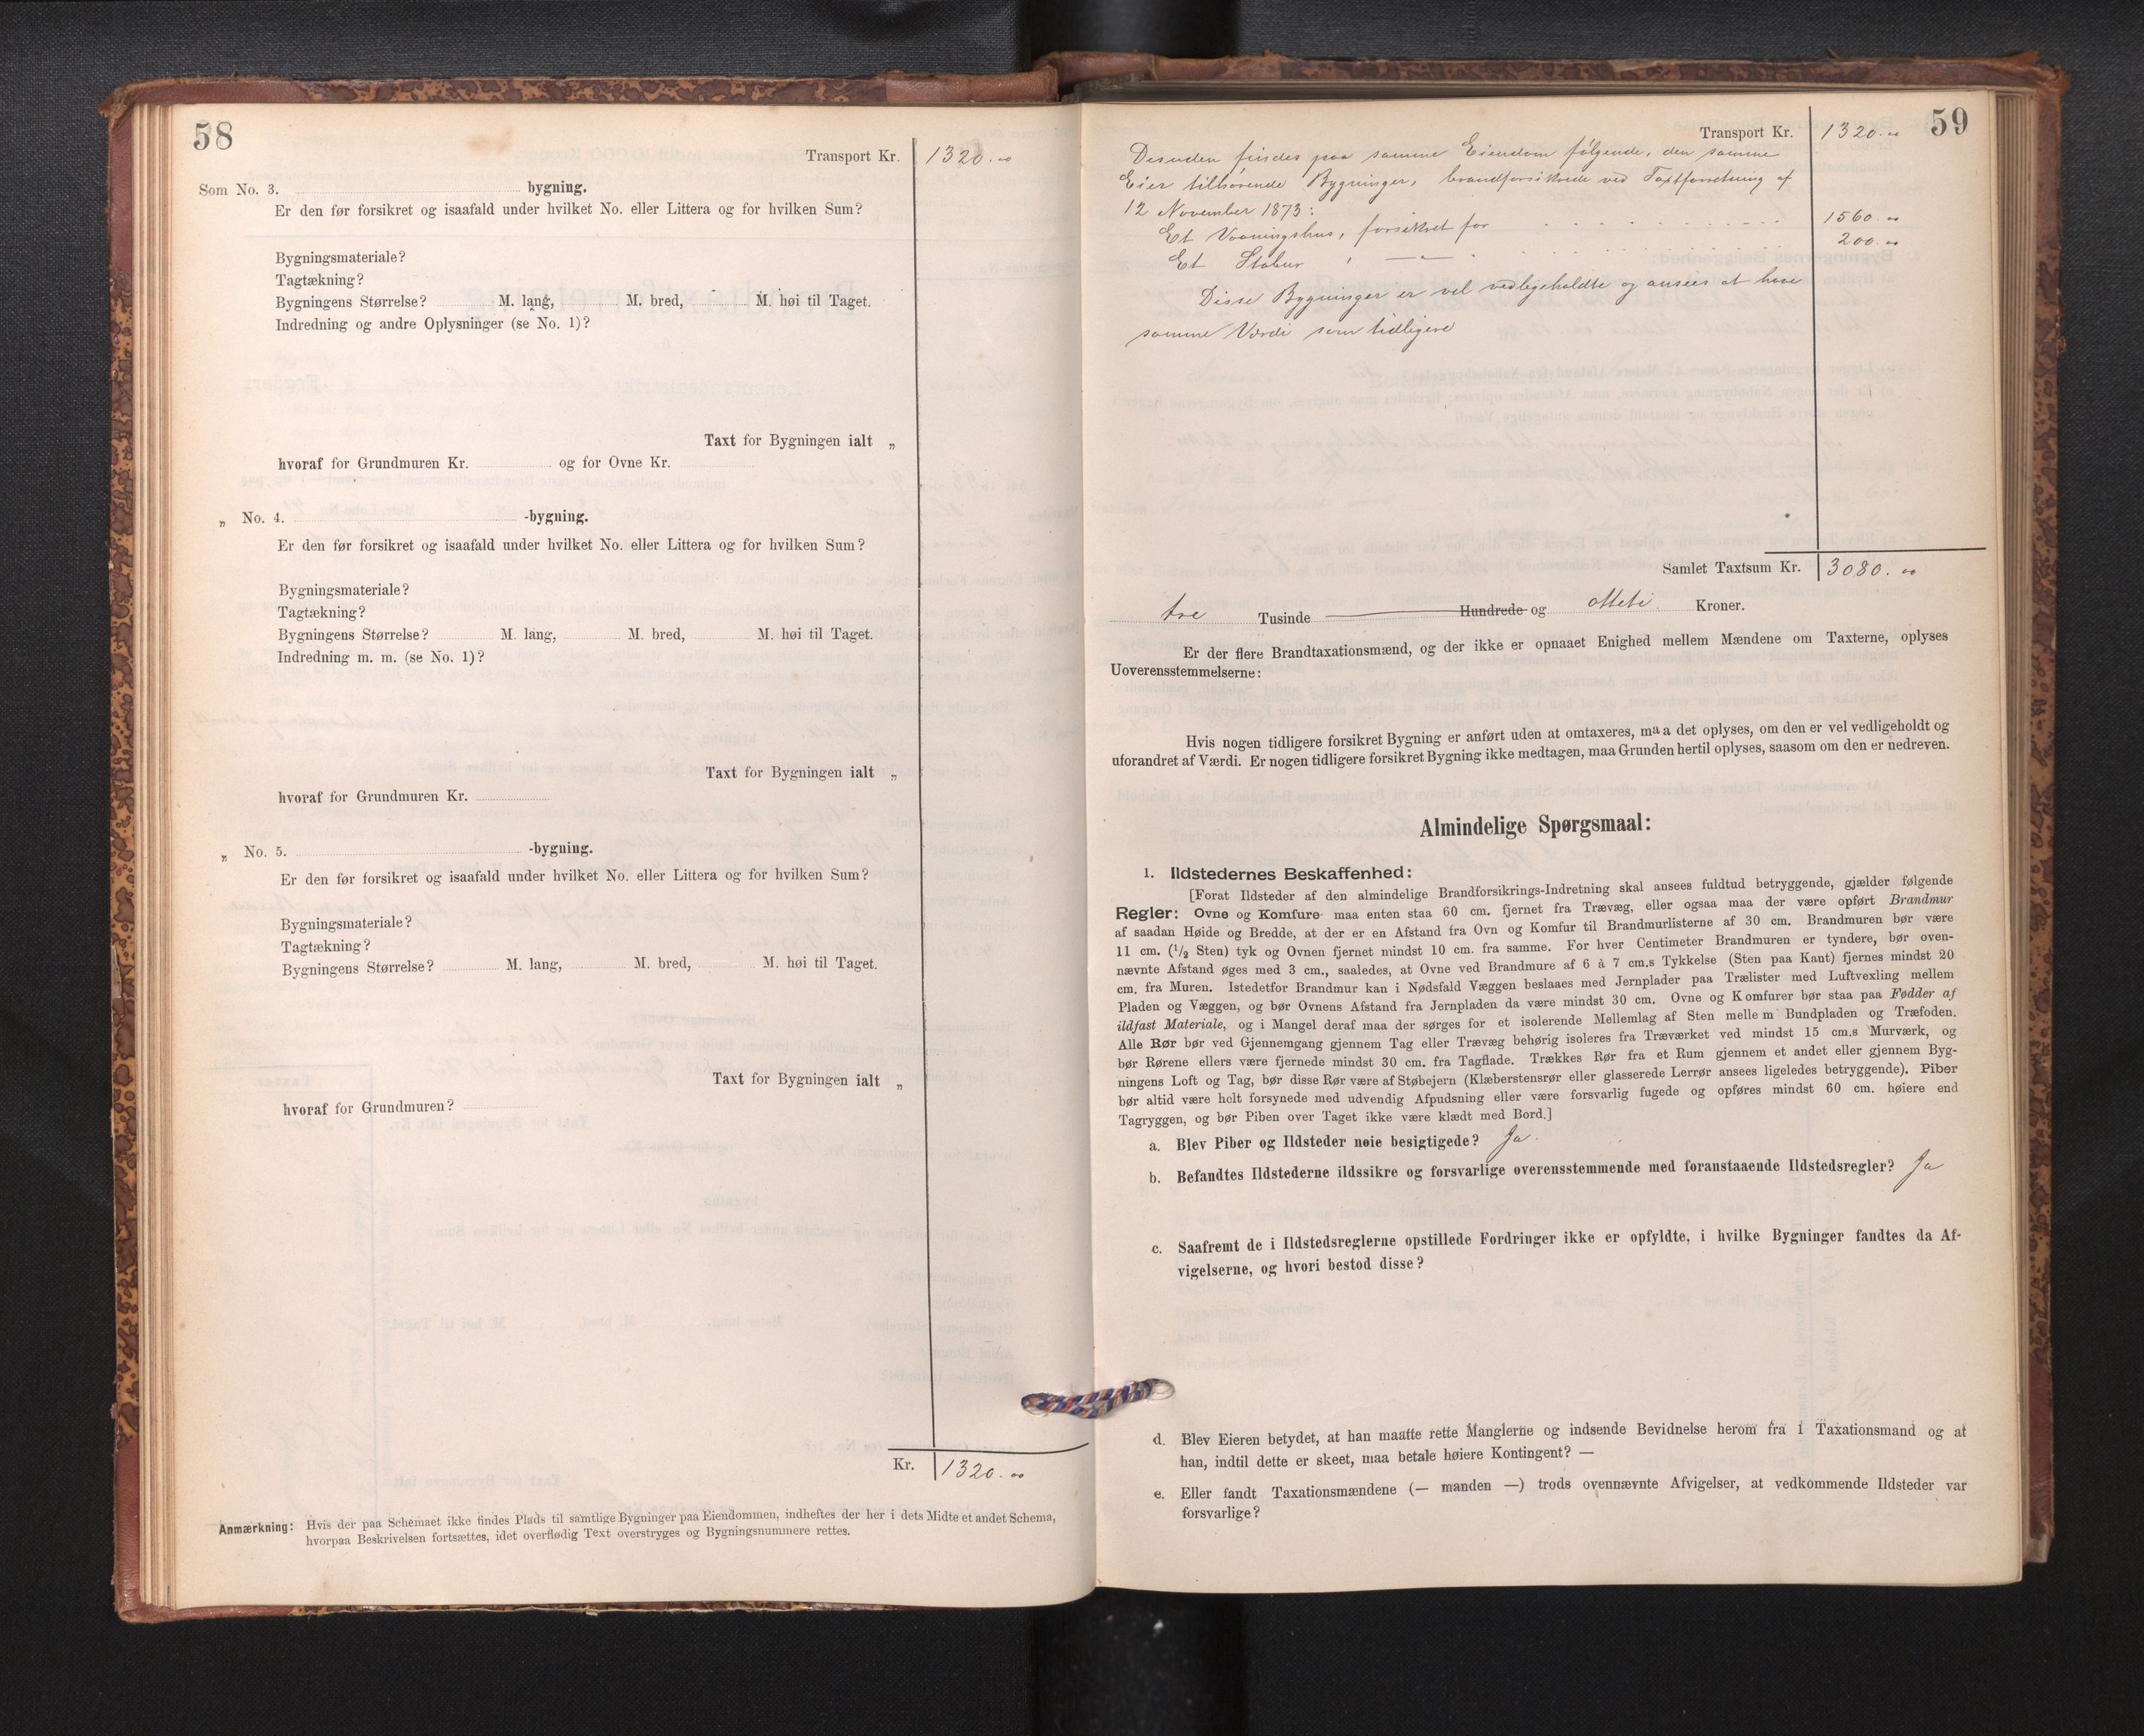 58
Transport Kr. 1320.00
Som No. 3. bygning.
Er den før forsikret og isaafald under hvilket No. eller Littera og for hvilken Sum?
Bygningsmateriale?
Tagtækning?
Bygningens Størrelse? M. lang, M. bred, M. høi til Taget.
Indredning og andre Oplysninger (se No. 1)?
Taxt for Bygningen ialt „
hvoraf for Grundmuren Kr. og for Ovne Kr.
„ No. 4. -bygning.
Er den før forsikret og isaafald under hvilket No. eller Littera og for hvilken Sum?
Bygningsmateriale?
Tagtækning?
Bygningens Størrelse? M. lang, M. bred, M. høi til Taget.
Indredning m. m. (se No. 1)?
Taxt for Bygningen ialt „
hvoraf for Grundmuren Kr.
„ No. 5. -bygning.
Er den før forsikret og isaafald under hvilket No. eller Littera og for hvilken Sum?
Bygningsmateriale?
Tagtækning?
Bygningens Størrelse? M. lang, M. bred, M. høi til Taget.
Taxt for Bygningen ialt „
hvoraf for Grundmuren?
Kr. 1320.00
Anmærkning: Hvis der paa Schemaet ikke findes Plads til samtlige Bygninger paa Eiendommen, indheftes der her i dets Midte et andet Schema,
hvorpaa Beskrivelsen fortsættes, idet overflødig Text overstryges og Bygningsnummere rettes.
59
Transport Kr. 1320.00
Desuden findes paa samme Eiendom følgende, den samme
Eier tilhørende Bygninger, brandforsikrede ved Taxtforretning af
12 November 1873:
Et Vaaningshus, forsikret for 1560.00
Et Stabur , —"— 200.00
Disse Bygninger er vel vedligeholdte og ansees at have
samme Værdi som tidligere
Samlet Taxtsum Kr. 3080.00
tre Tusinde Hundrede og otteti Kroner.
Er der flere Brandtaxationsmænd, og der ikke er opnaaet Enighed mellem Mændene om Taxterne, oplyses
Uoverensstemmelserne:
Hvis nogen tidligere forsikret Bygning er anført uden at omtaxeres, maa det oplyses, om den er vel vedligeholdt og
uforandret af Værdi. Er nogen tidligere forsikret Bygning ikke medtagen, maa Grunden hertil oplyses, saasom om den er nedreven.
Almindelige Spørgsmaal:
1. Ildstedernes Beskaffenhed:
[Forat Ildsteder af den almindelige Brandforsikrings-Indretning skal ansees fuldtud betryggende, gjælder følgende
Regler: Ovne og Komfure maa enten staa 60 cm. fjernet fra Trævæg, eller ogsaa maa der være opført Brandmur
af saadan Høide og Bredde, at der er en Afstand fra Ovn og Komfur til Brandmurlisterne af 30 cm. Brandmuren bør være
11 cm. (1/2 Sten) tyk og Ovnen fjernet mindst 10 cm. fra samme. For hver Centimeter Brandmuren er tyndere, bør oven-
nævnte Afstand øges med 3 cm., saaledes, at Ovne ved Brandmure af 6 à 7 cm.s Tykkelse (Sten paa Kant) fjernes mindst 20
cm. fra Muren. Istedetfor Brandmur kan i Nødsfald Væggen beslaaes med Jernplader paa Trælister med Luftvexling mellem
Pladen og Væggen, og bør Ovnens Afstand fra Jernpladen da være mindst 30 cm. Ovne og Komfurer bør staa paa Fødder af
ildfast Materiale, og i Mangel deraf maa der sørges for et isolerende Mellemlag af Sten mellem Bundpladen og Træfoden.
Alle Rør bør ved Gjennemgang gjennem Tag eller Trævæg behørig isoleres fra Træværket ved mindst 15 cm.s Murværk, og
bør Rørene ellers være fjernede mindst 30 cm. fra Tagflade. Trækkes Rør fra et Rum gjennem et andet eller gjennem Byg-
ningens Loft og Tag, bør disse Rør være af Støbejern (Klæberstensrør eller glasserede Lerrør ansees ligeledes betryggende). Piber
bør altid være helt forsynede med udvendig Afpudsning eller være forsvarlig fugede og opføres mindst 60 cm. høiere end
Tagryggen, og bør Piben over Taget ikke være klædt med Bord.]
a. Blev Piber og Ildsteder nøie besigtigede? Ja.
b. Befandtes Ildstederne ildssikre og forsvarlige overensstemmende med foranstaaende Ildstedsregler? Ja
c. Saafremt de i Ildstedsreglerne opstillede Fordringer ikke er opfyldte, i hvilke Bygninger fandtes da Af-
vigelserne, og hvori bestod disse?
d. Blev Eieren betydet, at han maatte rette Manglerne og indsende Bevidnelse herom fra 1 Taxationsmand og at
han, indtil dette er skeet, maa betale høiere Kontingent? —
e. Eller fandt Taxationsmændene (— manden —) trods ovennævnte Afvigelser, at vedkommende Ildsteder var
forsvarlige?